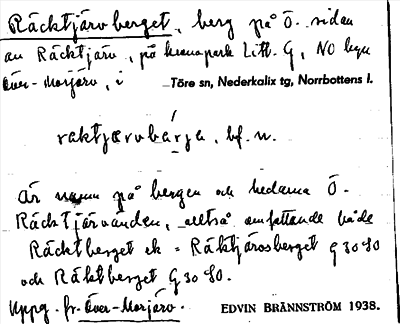 Räcktjärvberget, berg på Ö. sidan
av Räcktjärv, på kronopark Litt. G, NO byn
Över-Morjärv, i Töre sn, Nederkalix tg, Norrbottens l.
raktjærvbærja, bf. n.
är namn på bergen och hedarna Ö.
Räcktjärvänden, alltså omfattande både
Räcktberget ek = Räktjärvsberget g 30 80
och Räktberget g 30 80.
Uppg. fr. Över-Morjärv. EDVIN BRÄNNSTRÖM 1938.